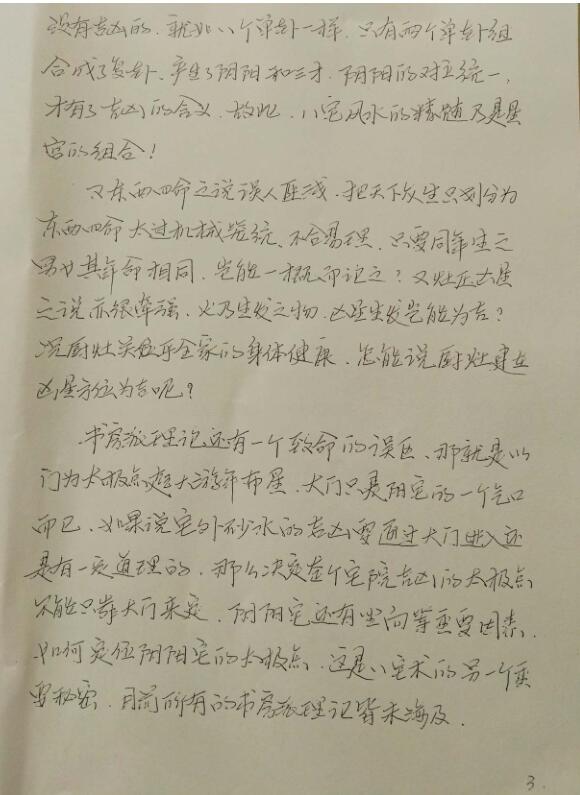 没有吉凶的，就如八个单卦一样，只有两个单卦组
合成了复卦，产生了阴阳和三才，阴阳的对立统一，
才有了吉凶的含义，故此，八宅风水的精髓乃是星
宫的组合！
又东西四命之说误人匪浅，把天下众生只划分为
东西四命太过机械笼统，不合易理，只要同年生之
男女其年命相同，岂能一概而论之？又灶压凶星
之说亦很牵强，火乃生发之物，凶星生发岂能为吉？
况厨灶关系乎全家的身体健康，怎能说厨灶建在
凶星方位为吉呢？
书房派理论还有一个致命的误区，那就是以
门为太极点起大游年布星，大门只是阳宅的一个气口
而已，如果说宅外砂水的吉凶要通过大门进入还
是有一定道理的，那么决定整个宅院吉凶的太极点
不能只靠大门来定，阴阳宅还有坐向等重要因素，
如何定位阴阳宅的太极点，这是八宅术的另一个重
要秘密，目前所有的书房派理论皆未涉及。
3.